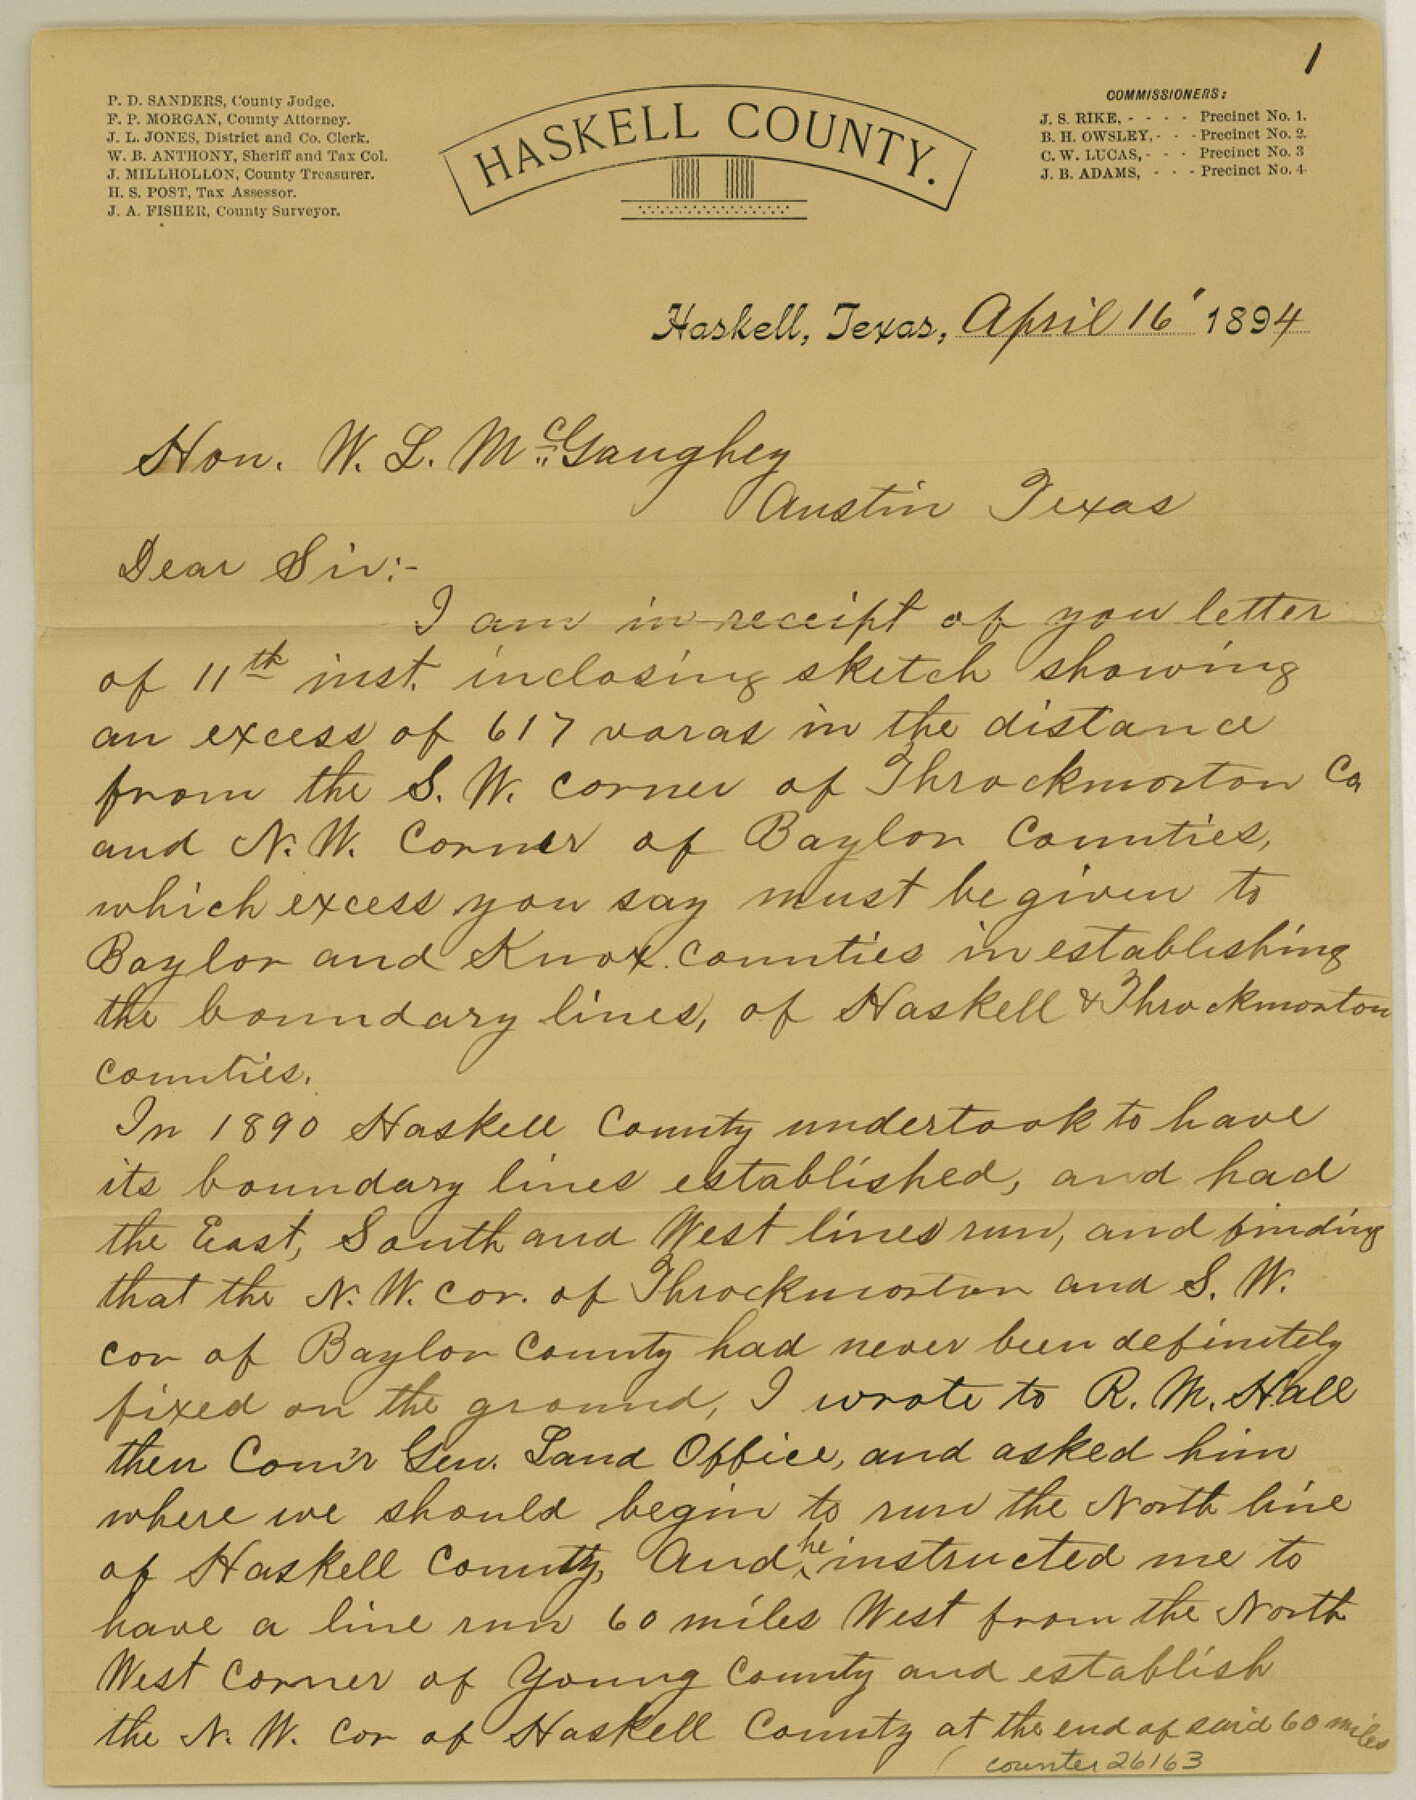 1
P. D. SANDERS, County Judge.
F. P. MORGAN, County Attorney.
J. L. JONES, District and Co. Clerk.
W. B. ANTHONY, Sheriff and Tax Col.
J. MILLHOLLON, County Treasurer.
H. S. POST, Tax Assessor.
J. A. FISHER, County Surveyor.
HASKELL COUNTY.
COMMISSIONERS:
J. S. RIKE, - - - - Precinct No. 1.
B. H. OWSLEY, - - - Precinct No. 2.
C. W. LUCAS, - - - Precinct No. 3
J. B. ADAMS, - - - Precinct No. 4.
Haskell, Texas, April 16" 1894
Hon. W. L. McGaughey
Austin Texas
Dear Sir:-
I am in receipt of you letter
of 11th inst. inclosing sketch showing
an excess of 617 varas in the distance
from the S. W. corner of Throckmorton Co
and N. W. Corner of Baylor Counties,
which excess you say must be given to
Baylor and Knox counties in establishing
the boundary lines, of Haskell & Throckmorton
counties.
In 1890 Haskell County undertook to have
its boundary lines established, and had
the East, South and West lines run, and finding
that the N. W. cor. of Throckmorton and S. W.
cor of Baylor County had never been definitely
fixed on the ground, I wrote to R. M. Hall
then Com'r Gen. Land Office, and asked him
where we should begin to run the North line
of Haskell County, And he instructed me to
have a line run 60 miles West from the North
West Corner of Young County and establish
the N. W. Cor of Haskell County at the end of said 60 miles
counter 26163